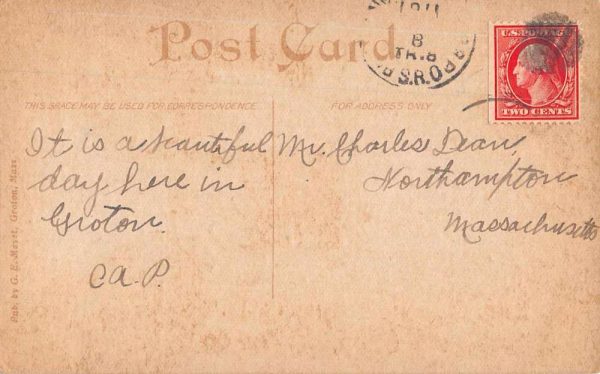 Post Card
THIS SPACE MAY BE USED FOR CORRESPONDENCE
FOR ADDRESS ONLY
U.S. POSTAGE
TWO CENTS
8
TR.8
R.P.O.
It is a beautiful
day here in
Groton.
C.A.P.
Mr. Charles Dean,
Northampton
Massachusetts
Pub. by G. H. Groton, Mass.